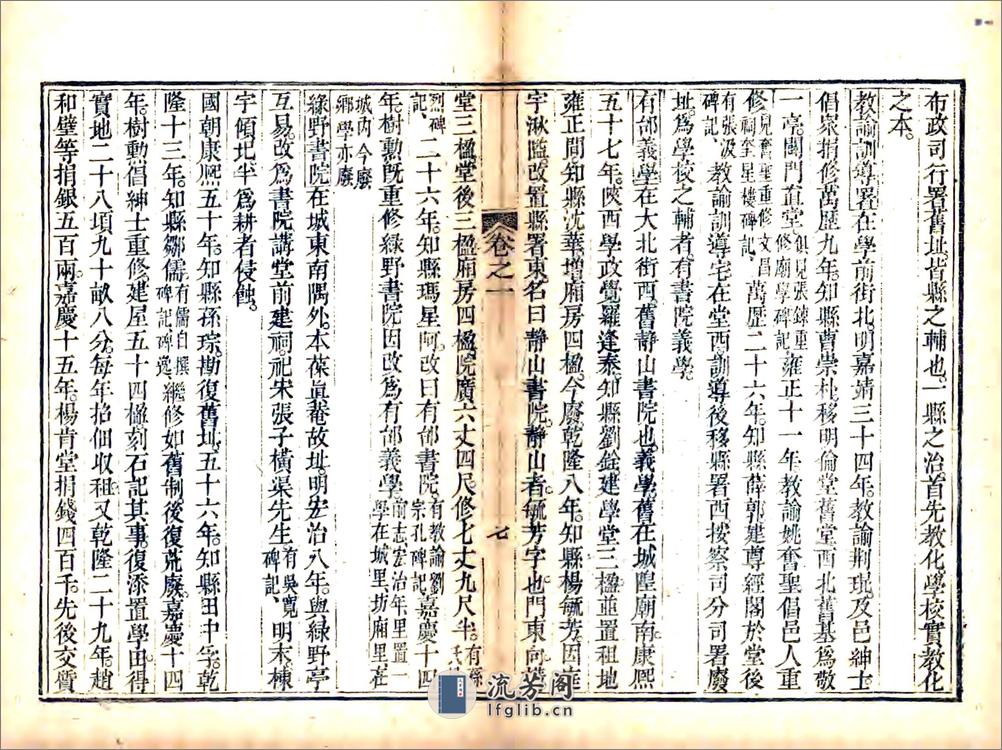 布政司行署舊址皆縣之輔也一縣之治首先教化學校實教化
之本
教諭訓導署在學前街北明嘉靖三十四年教諭荆琨及邑紳士
倡家捐修萬歷九年知縣曹崇朴移明倫堂舊堂西北舊基爲敬
一亭闢門直堂俱見張鍊重修廟學碑記雍正十一年教諭姚奮聖倡邑人重
修見奮聖重修文昌祠奎星樓碑記萬歷二十六年知縣薛郭建尊經閣於堂後
有張汲碑記教諭訓導宅在堂西訓導後移縣署西按察司分司署廢
址爲學校之輔者有書院義學
有邰義學在大北街西舊靜山書院也義學舊在城隍廟南康熙
五十七年陝西學政覺羅逢泰知縣劉銓建學堂三楹並置租地
雍正間知縣沈華增廂房四楹今廢乾隆八年知縣楊毓芳因
宇湫隘改置縣署東名曰靜山書院靜山者毓芳字也門東向
堂三楹堂後三楹廂房四楹院廣六丈四尺修七丈九尺半有縣
烈碑記二十六年知縣瑪星阿改曰有邰書院有教諭劉宗孔碑記嘉慶十四
年樹勳旣重修綠野書院因改爲有邰義學前志宏治年里置一學在城里坊廂里在
城内今廢鄉學亦廢
綠野書院在城東南隅外本葆眞菴故址明宏治八年與綠野亭
互易改爲書院講堂前建祠祀宋張子橫渠先生有吳寬碑記明末棟
宇傾圮半爲耕者侵蝕
國朝康熙五十年知縣孫琮勘復舊址五十六年知縣田中孚乾
隆十三年知縣鄒儒有儒自撰碑記碑逸繼修如舊制後復荒廢嘉慶十四
年樹勳倡紳士重修建屋五十四楹刻石記其事復添置學田得
實地二十八項九十畝八分每年招佃收租又乾隆二十九年趙
和璧等捐銀五百兩嘉慶十五年楊肯堂捐錢四百千先後交質
卷之一
七
流芳閣
lfglib.cn